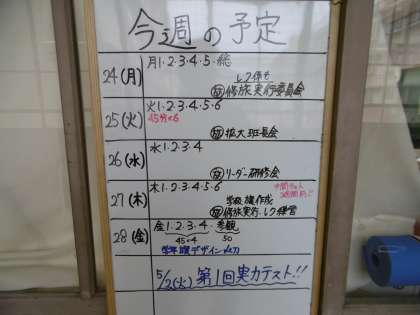 今週の予定
24(月) 月1·2·3·4·5·総
レク係も
放 修旅実行委員会
25(火) 火1·2·3·4·5·6
45分×6
放 拡大班長会
26(水) 水1·2·3·4
放 リーダー研修会
27(木) 木1·2·3·4·5·6
学級旗作成
放 修旅実行·レク
28(金) 金1·2·3·4·参観
45×4 50
学年旗デザイン〆切
5/2(火) 第1回実力テスト!!